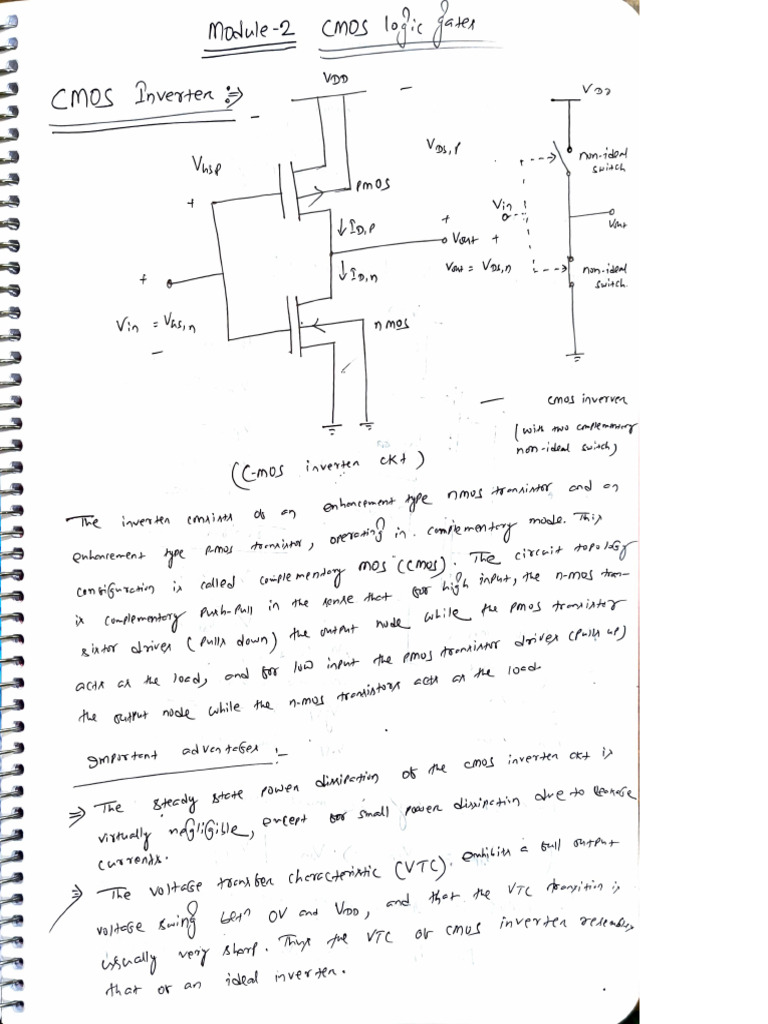 Module-2 CMOS logic gates
CMOS Inverter :⇒
VDD
VDD
VGSP
VDS,P
pmos
non-ideal
switch
+
ID,P
+
Vin
Vout +
Vout
+
ID,n
Vout = VDS,n
non-ideal
switch.
Vin = VGS,n
nmos
–
– CMOS inverver
(with two complementary
non-ideal switch)
(C-MOS inverter ckt)
The inverter consists of an enhancement type nmos transistor and an
enhancement type pmos transistor, operating in complementory mode. This
configuration is called complementory MOS (CMOS). The circuit topology
is complementory push-pull in the sense that for high input, the n-mos tran-
sistor drives (pulls down) the output node while the pmos transistor
acts as the load, and for low input the pmos transistor drives (pulls up)
the output node while the n-mos transistors acts as the load
Important adventages :–
⇒ The steady state power dissipation of the cmos inverter ckt is
virtually negligible, except for small power dissipation due to leakage
currents.
⇒ The voltage transfer characteristic (VTC). exhibits a full output
voltage swing betn 0V and VDD, and that the VTC transition is
usually very sharp. Thus the VTC of cmos inverter resembles
that of an ideal inverter.